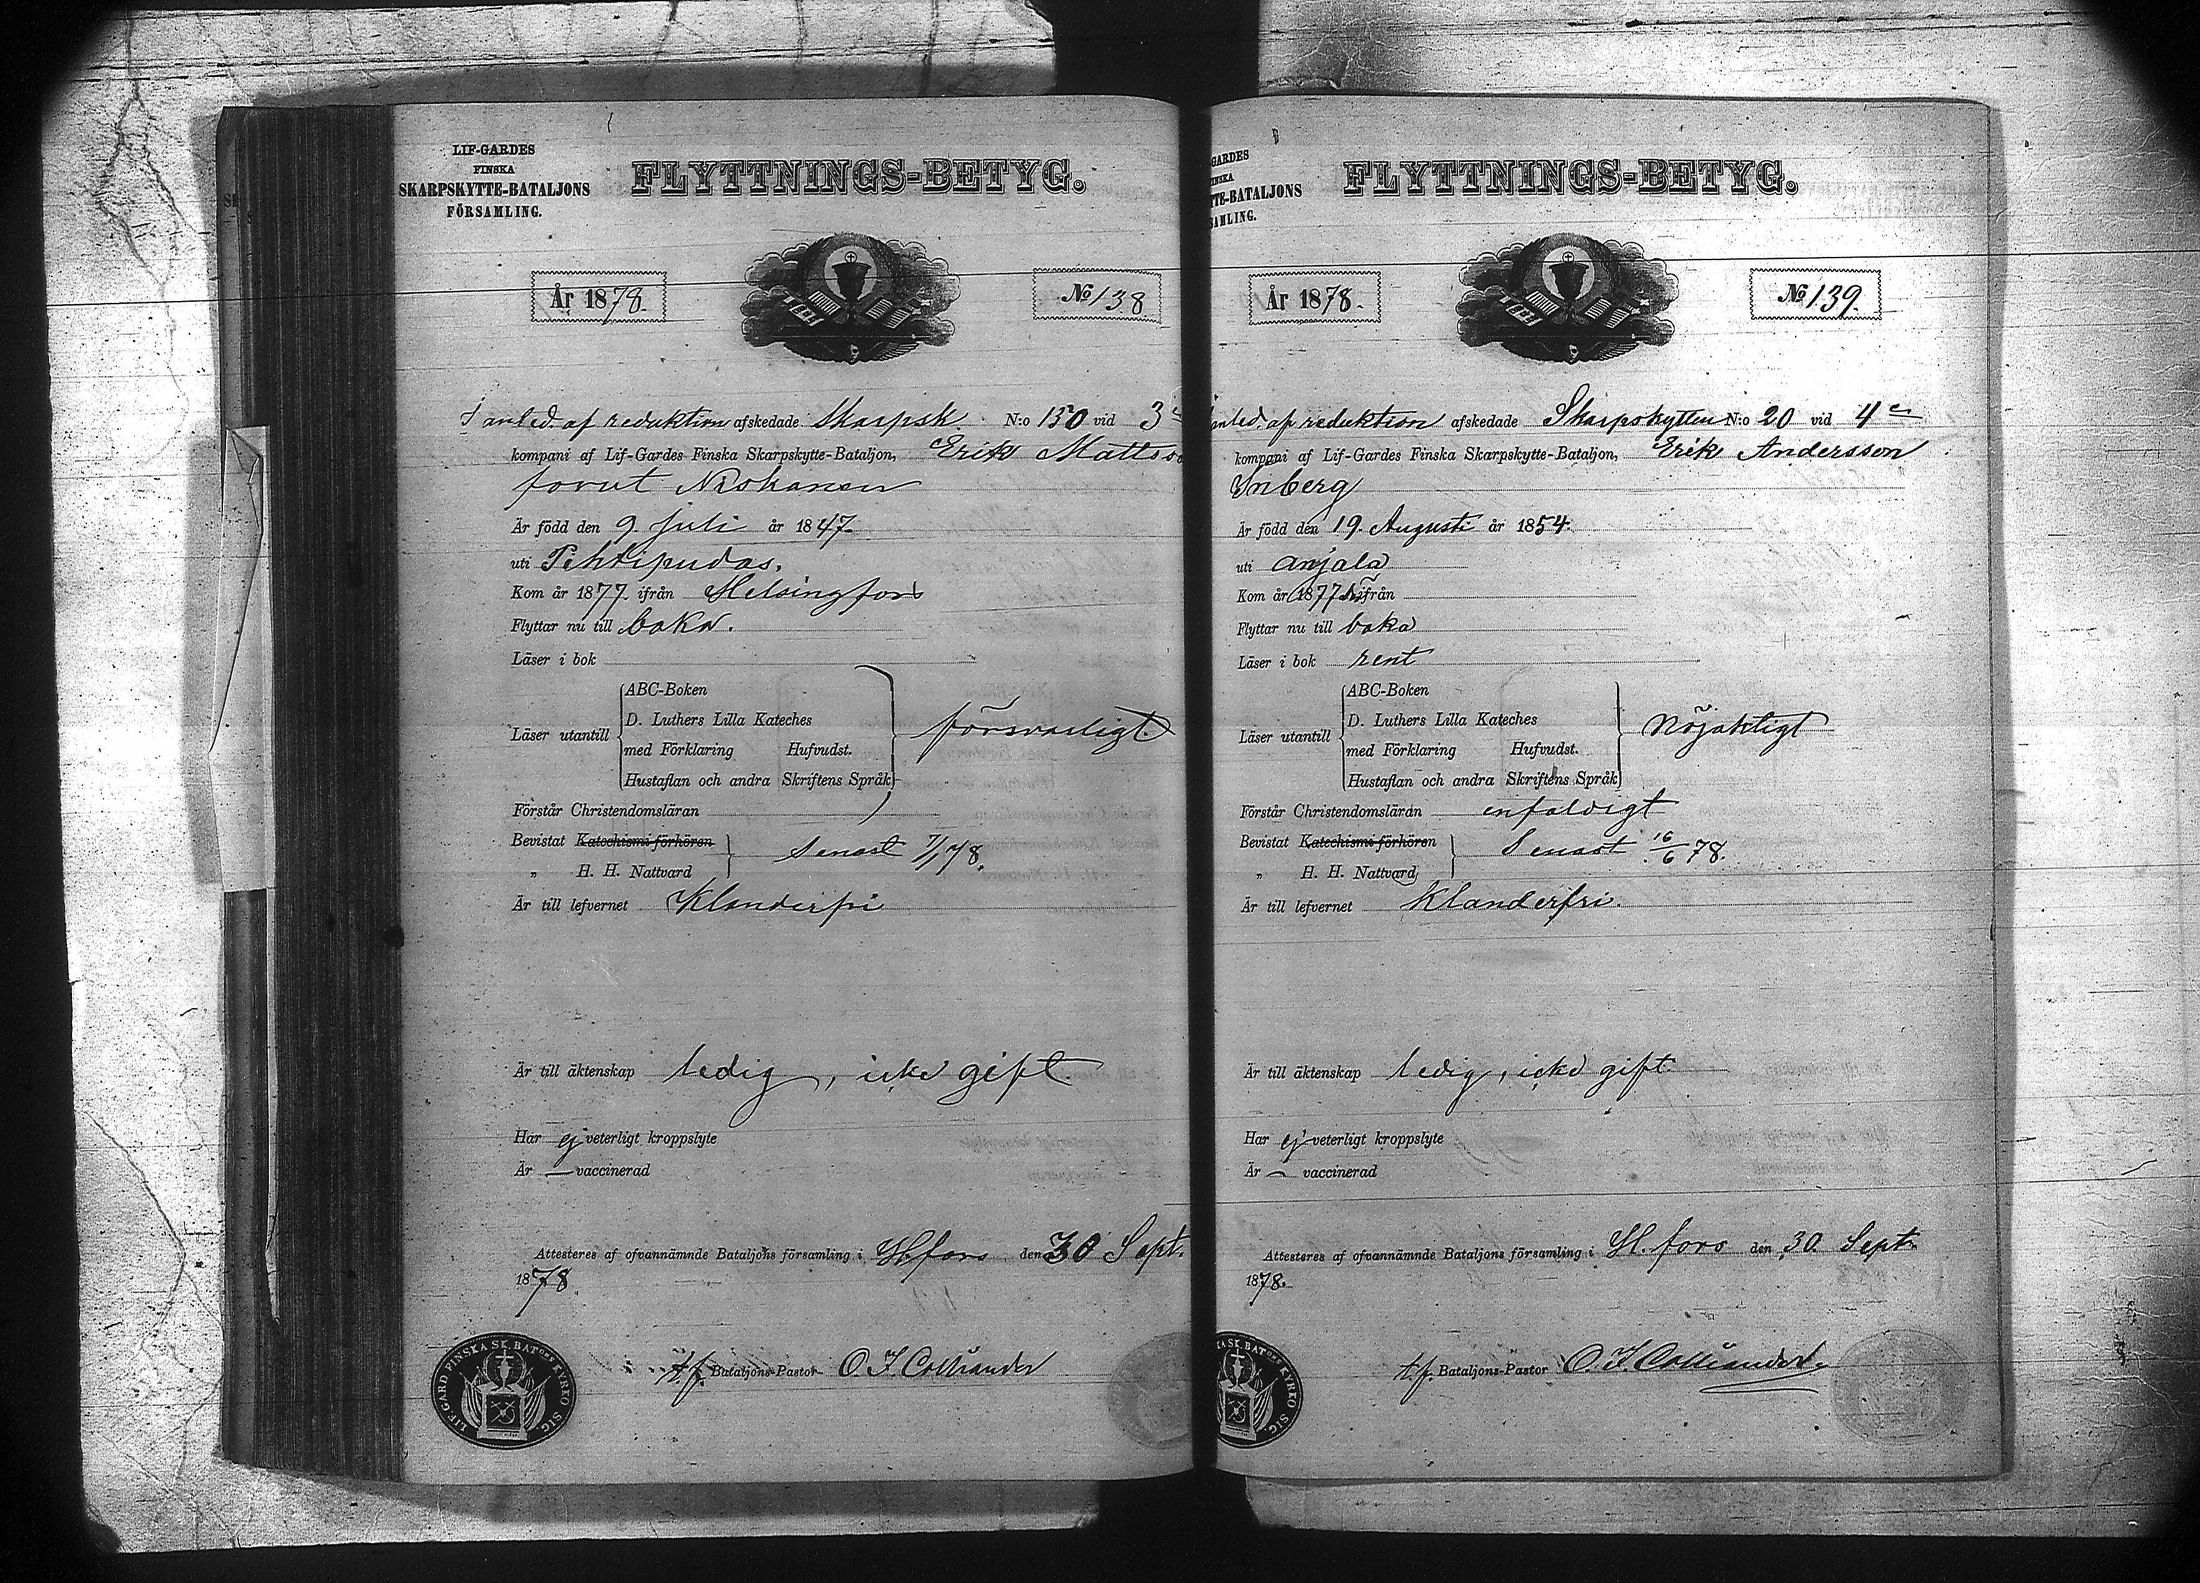 LIF-GARDES
FINSKA
SKARPSKYTTE-BATALJONS
FÖRSAMLING.
FLYTTNINGS-BETYG.
År 1878.
No 138
I anled. af reduktion afskedade Skarpsk. N:o 150 vid 3
kompani af Lif-Gardes Finska Skarpskytte-Bataljon, Erik Mattsso
förut Niskanen
Är född den 9. juli år 1847.
uti Pihtipudas.
Kom år 1877. ifrån Helsingfors
Flyttar nu till baka.
Läser i bok
ABC-Boken
D. Luthers Lilla Kateches
Läser utantill
med Förklaring Hufvudst.
försvarligt.
Hustaflan och andra Skriftens Språk
Förstår Christendomsläran
Bevistat Katechismi förhören
„ H. H. Nattvard
Senast 7/1 78.
Är till lefvernet Klanderfri
Är till äktenskap ledig, icke gift.
Har ej veterligt kroppslyte
Är — vaccinerad
Attesteres af ofvannämnde Bataljons församling i H.fors den 30 Sept.
1878.
t.f. Bataljons-Pastor O. I. Colliander
LIF-GARD FINSKA SK. BATONS KYRKO SIG.
GARDES
INSKA
TTE-BATALJONS
SAMLING.
FLYTTNINGS-BETYG.
År 1878.
No 139.
anled. af reduktion afskedade Skarpskytten N:o 20 vid 4
kompani af Lif-Gardes Finska Skarpskytte-Bataljon, Erik Andersson
Ynberg
Är född den 19. Augusti år 1854.
uti Anjala
Kom år 1877 ifrån
Flyttar nu till baka
Läser i bok rent
ABC-Boken
D. Luthers Lilla Kateches
Läser utantill
med Förklaring Hufvudst.
Nöjaktigt
Hustaflan och andra Skriftens Språk
Förstår Christendomsläran enfaldigt
Bevistat Katechismi förhören
„ H. H. Nattvard
Senast 16/6 78.
Är till lefvernet Klanderfri.
Är till äktenskap ledig, icke gift.
Har ej veterligt kroppslyte
Är — vaccinerad
Attesteres af ofvannämnde Bataljons församling i H.fors den 30. Sept.
1878.
t.f. Bataljons-Pastor O. I. Colliander
KA SK. BATONS KYRKO SIG.